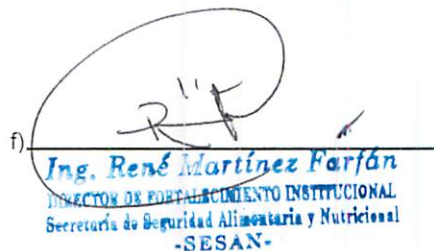 f)
Ing. René Martínez Farfán
DIRECTOR DE FORTALECIMIENTO INSTITUCIONAL
Secretaría de Seguridad Alimentaria y Nutricional
-SESAN-